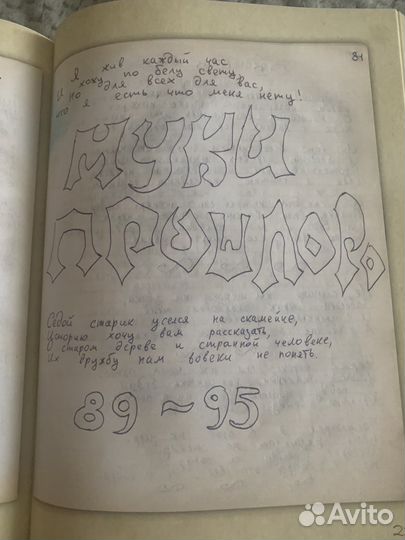 Я жив каждый час
И хожу по белу свету
Но для всех для вас,
что я есть, что меня нету!
81
МУКИ
ПРОШЛОГО
Седой старик уселся на скамейке,
Историю хочу вам рассказать,
О старом дереве и странной человеке,
Их дружбу нам вовеки не понять.
89 ~ 95
Avito